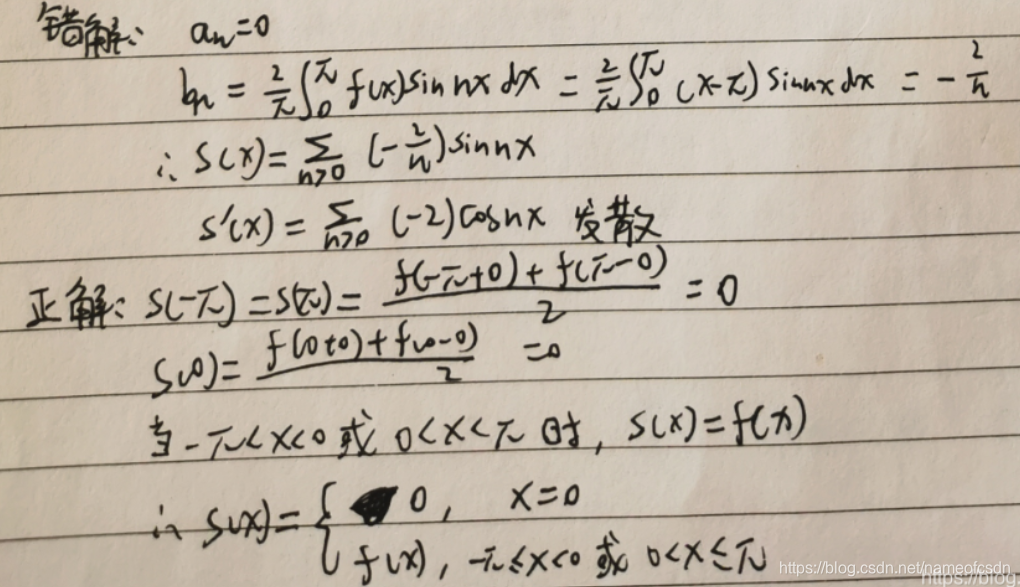 错解: aₙ=0
bₙ = 2/π ∫₀^π f(x) sin nx dx = 2/π ∫₀^π (x-π) sin nx dx = - 2/n
∴ S(x) = ∑_{n>0} (-2/n) sin nx
S'(x) = ∑_{n>0} (-2) cos nx 发散
正解: S(-π) = S(π) = (f(-π+0) + f(π-0))/2 = 0
S(0) = (f(0+0) + f(0-0))/2 = 0
当 -π<x<0 或 0<x<π 时, S(x) = f(x)
∴ S(x) = { 0, x=0
f(x), -π≤x<0 或 0<x≤π
https://blog.csdn.net/nameofcsdn
https://blog